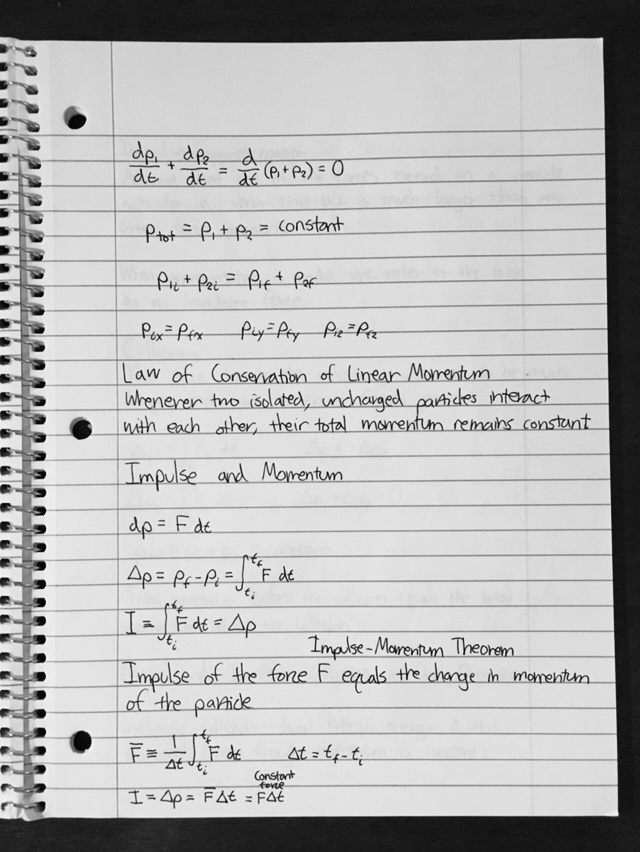 dp₁/dt + dp₂/dt = d/dt (p₁ + p₂) = 0
p_tot = p₁ + p₂ = constant
p₁ᵢ + p₂ᵢ = p₁f + p₂f
pᵢₓ = p_fx    p_iy = p_fy    p_iz = p_fz
Law of Conservation of Linear Momentum
Whenever two isolated, uncharged particles interact
with each other, their total momentum remains constant
Impulse and Momentum
dp = F dt
Δp = p_f - p_i = ∫_{t_i}^{t_f} F dt
I ≡ ∫_{t_i}^{t_f} F dt = Δp
Impulse-Momentum Theorem
Impulse of the force F equals the change in momentum
of the particle
F̅ ≡ 1/Δt ∫_{t_i}^{t_f} F dt    Δt = t_f - t_i
Constant
force
I = Δp = F̅ Δt = FΔt